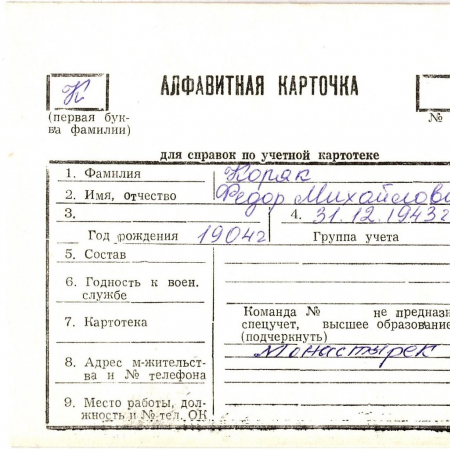 К
АЛФАВИТНАЯ КАРТОЧКА
(первая бук-
ва фамилии)
№
для справок по учетной картотеке
1. Фамилия Коряк
2. Имя, отчество Федор Михайлови
3. 4. 31.12.1943г
Год рождения 1904г Группа учета
5. Состав
6. Годность к воен.
службе
7. Картотека
Команда № не предназн
спецучет, высшее образование
(подчеркнуть)
8. Адрес м-жительст-
ва и № телефона
Монастырек
9. Место работы, дол-
жность и № тел. ОК